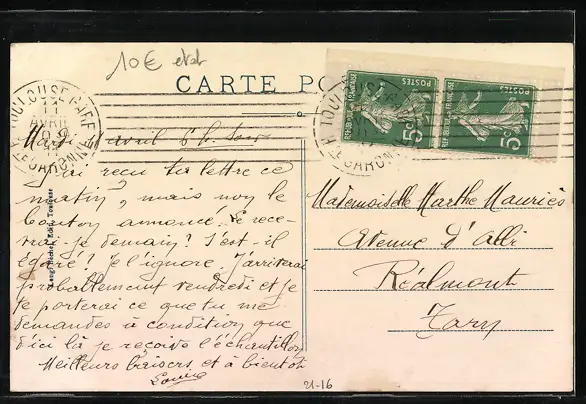 10€ etat
CARTE PO
TOULOUSE GARE
11
AVRIL
HTE GARONNE
POSTES
REPUBLIQUE FRANÇAISE
5c
POSTES
REPUBLIQUE FRANÇAISE
5c
TOULOUSE GARE
HTE GARONNE
Mardi avril 6h. soir
J'ai reçu ta lettre ce
matin, mais non le
bouton annoncé. Le rece-
vrai-je demain? S'est-il
égaré? Je l'ignore. J'arriverai
probablement vendredi et je
te porterai ce que tu me
demandes à condition que
d'ici là je reçoive l'échantillon
Meilleurs baisers et à bientôt
Louise
Mademoiselle Marthe Mauriès
Avenue d'Albi
Réalmont
Tarn
Toulouse
21-16